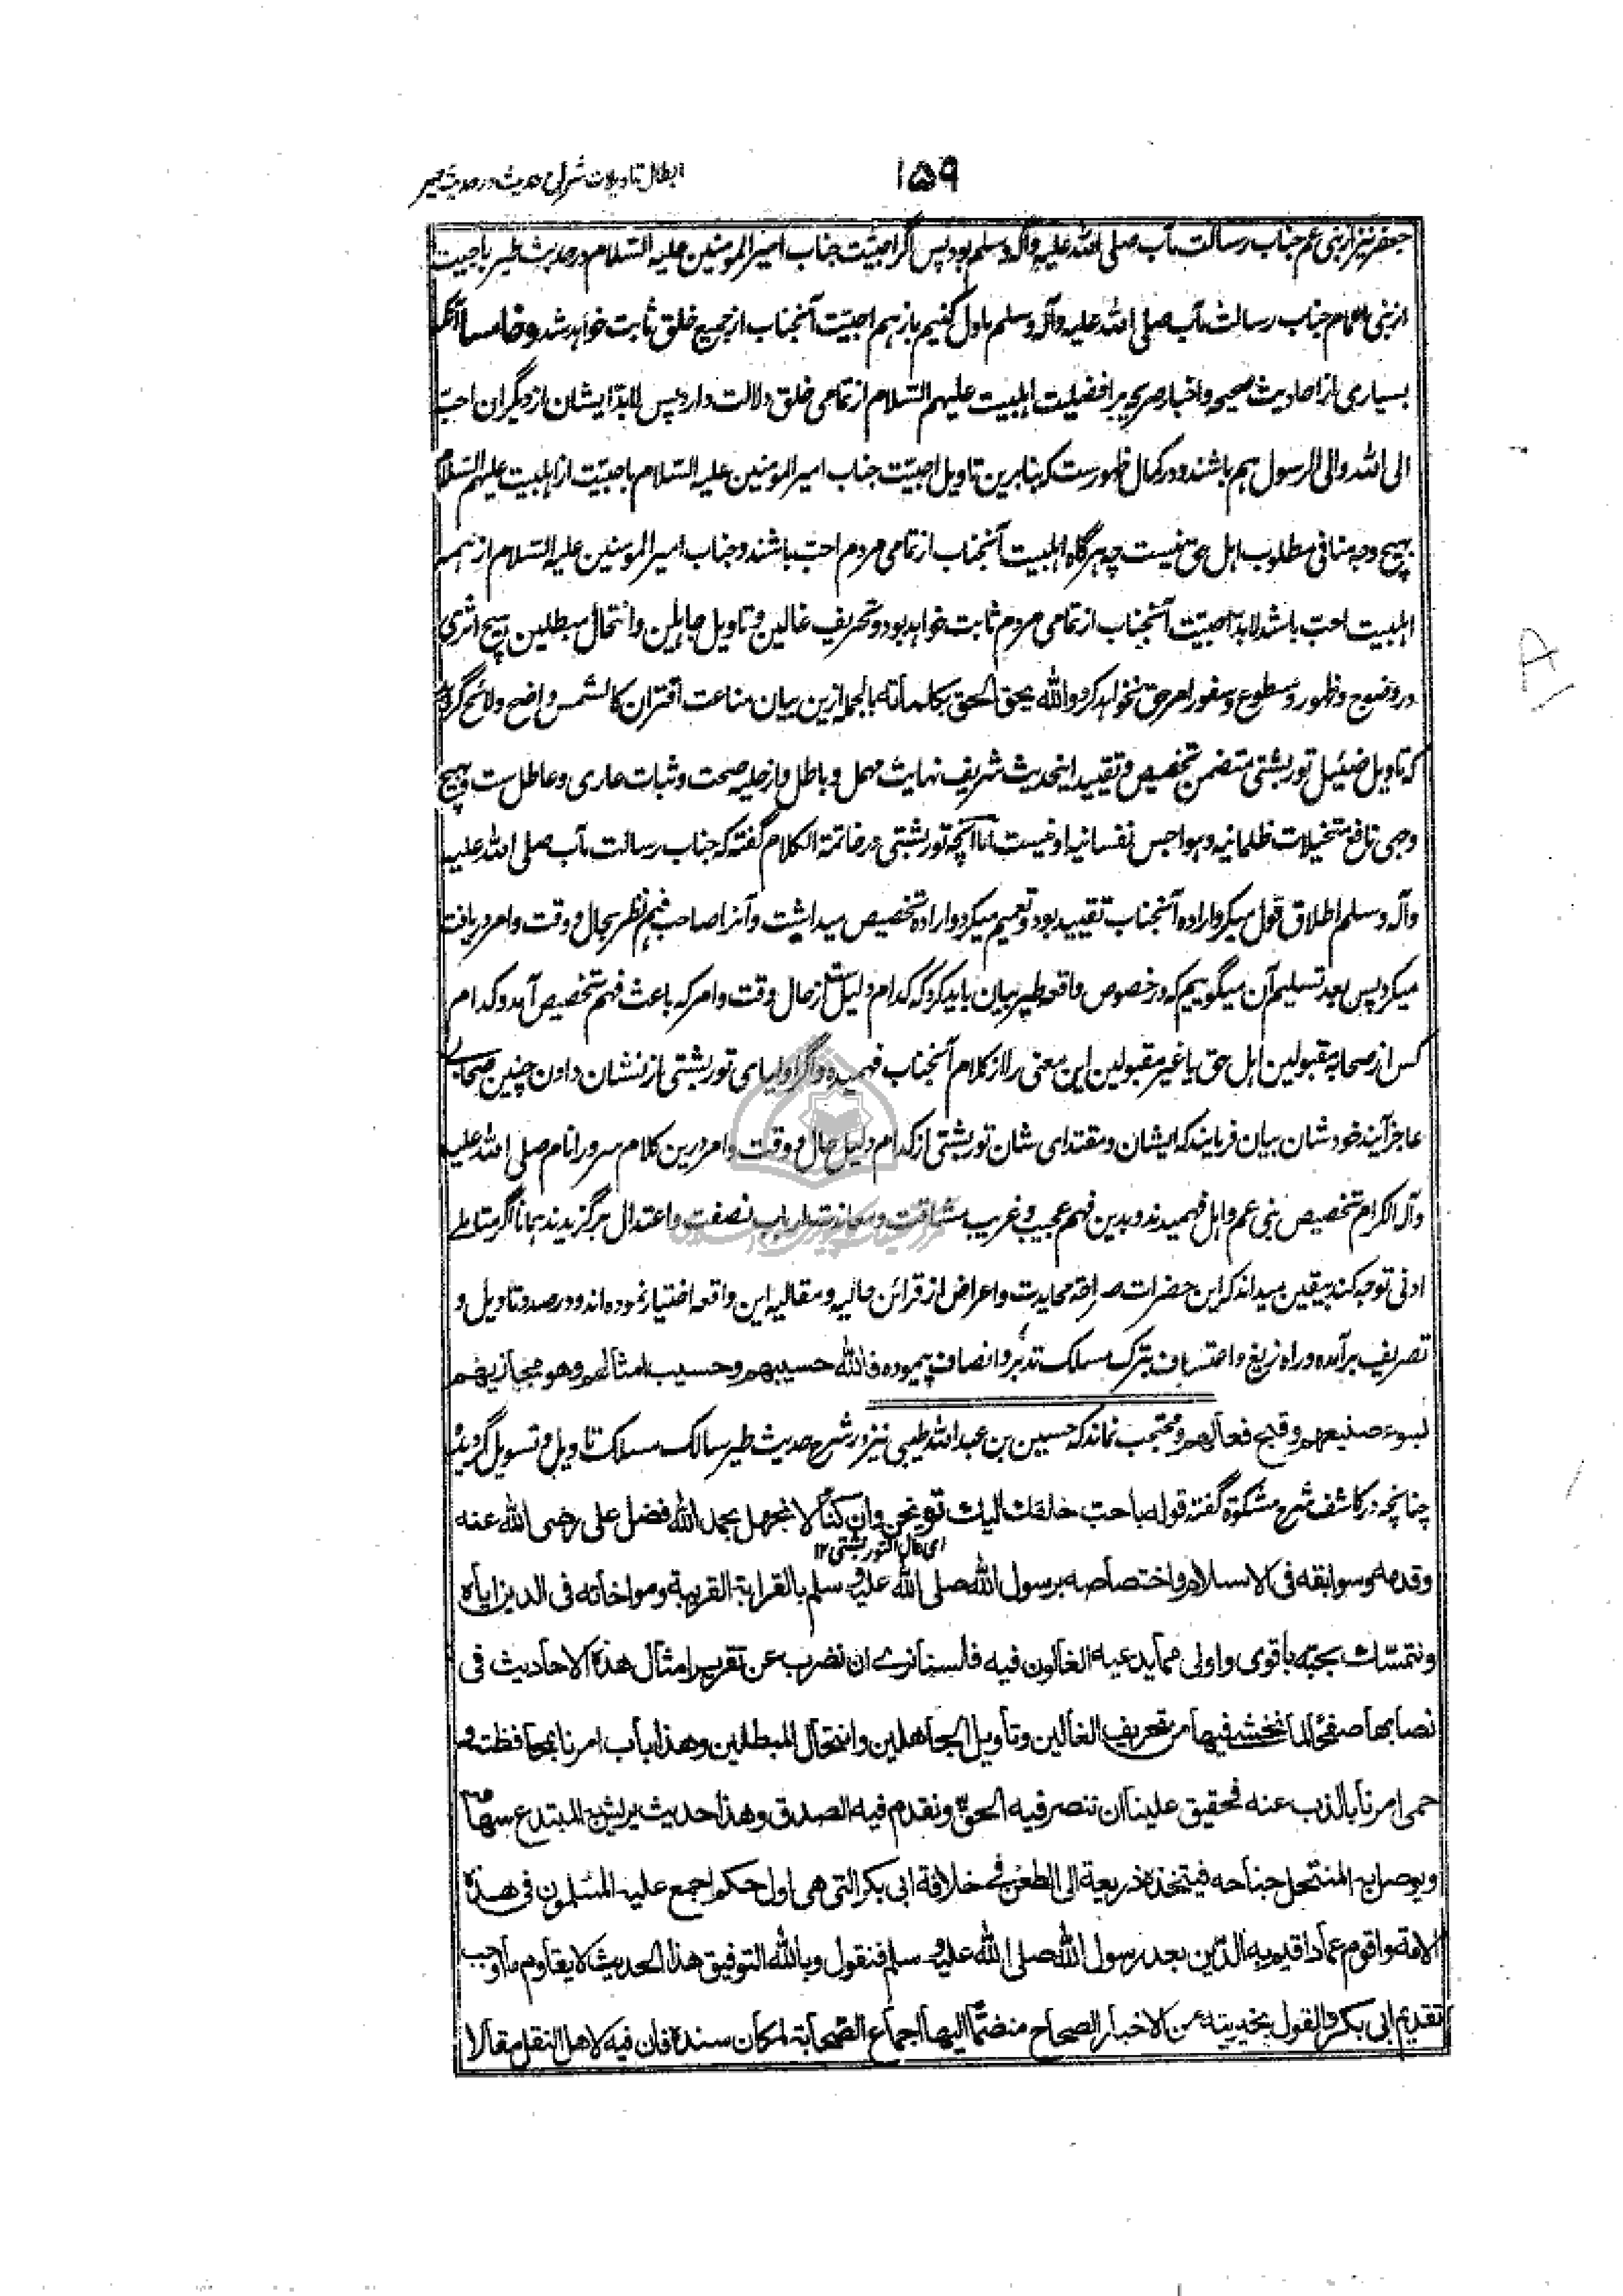 ۱۵۹
ابطال تاویلات شراح حدیث در حدیث طیر
جعفر نیز از بنی عم جناب رسالت مآب صلی الله علیه وآله وسلم بود پس اگر احبیّت جناب امیر المومنین علیه السّلام در حدیث طیر باحبیت
از بنی اعمام جناب رسالت مآب صلی الله علیه وآله وسلم ماول کنیم باز هم احبیّت آنجناب از جمیع خلق ثابت خواهد شد وخامسا آنکه
بسیاری از احادیث صحیحه و اخبار صریحه بر افضلیت اهلبیت علیهم السّلام از تمامی خلق دلالت دارد پس لابدّ ایشان از دیگران احبّ
الی الله والی الرسول هم باشند و در کمال ظهورست که بنابرین تاویل احبیّت جناب امیر المومنین علیه السّلام باحبیّت از اهلبیت علیهم السّلام
بهیچ وجه منافی مطلوب اهل حق نیست چه هرگاه اهلبیت آنجناب از تمامی مردم احبّ باشند و جناب امیر المومنین علیه السّلام از همه
اهلبیت احبّ باشد لابدّ احبیّت آنجناب از تمامی مردم ثابت خواهد بود و تحریف غالین و تاویل جاهلین و انتحال مبطلین هیچ اثری
در وضوح و ظهور و سطوع و سفور امر حق نخواهد کرد والله یحق الحق بکلماته بالجمله ازین بیان مناعت اقتران کالشمس واضح و لائح گردید
که تاویل ضئیل توربشتی متضمن تخصیص و تقیید اینحدیث شریف نهایت مهمل و باطل و از حلیه صحت و ثبات عاری و عاطل ست و بهیچ
وجهی نافع تخیلات ظلمانیه و هواجس نفسانیه او نیست اما آنچه توربشتی در خاتمة الکلام گفته که جناب رسالت مآب صلی الله علیه
وآله وسلم اطلاق قول میکرد و اراده آنجناب تقیید بود و تعمیم میکرد و اراده تخصیص میداشت و آنرا صاحب فهم نظر بحال و وقت و امر دریافت
میکرد پس بعد تسلیم آن میگوییم که در خصوص واقعه طیر بیان باید کرد که کدام دلیل ست از حال و وقت و امر که باعث فهم تخصیص آمد و کدام
کس از صحابه مقبولین اهل حق یا غیر مقبولین این معنی را از کلام آنجناب فهمیده و اگر اولیای توربشتی از نشان دادن چنین صحابی
عاجز آیند خودشان بیان فرمایند که ایشان و مقتدای شان توربشتی از کدام دلیل حال و وقت و امر درین کلام سرور انام صلی الله علیه
وآله الکرام تخصیص بنی عم و اهل فهمیدند و بدین فهم عجیب و غریب مشاقت و معاندت ارباب نصفت و اعتدال برگزیدند همانا اگر متاملے
ادنی توجه کند بیقین میداند که این حضرات صراحة محایدت و اعراض از قرائن حالیه و مقالیه این واقعه اختیار نموده اند و در صدد تاویل و
تصریف برآمده و راه زیغ و اعتساف بترک مسلک تدبّر و انصاف پیموده فالله حسیبهم وحسیب امثالهم وهو مجازیهم
لسوء صنیعهم وقبیح فعالهم و محتجب نماند که حسین بن عبدالله طیبی نیز در شرح حدیث طیر سالک مسلک تاویل و تسویل گردیده
چنانچه در کاشف شرح مشکوة گفته قوله باحب خلقك الیك تو نحن وان کنّا لا نجهل بحمد الله فضل علی رضی الله عنه
ای قال التوربشتی ۱۲
وقدمه وسوابقه فی الاسلام واختصاصه برسول الله صلی الله علیه وسلم بالقرابة القریبة ومواخاته فی الدین ایاه
ونتمسّك بحبّه باقوی واولی ممّا یدعیه الغالون فیه فلسنا نرے ان نضرب عن تقریر امثال هذه الاحادیث فی
نصابها صفحًا لما نخشی فیها من تحریف الغالین وتاویل الجاهلین وانتحال المبطلین وهذا باب امرنا بمحافظته و
حمی امرنا بالذب عنه فحقیق علینا ان ننصر فیه الحقّ ونقدم فیه الصدق وهذا حدیث یریش به المبتدع سهامه
ویوصل به المنتحل جناحه فیتخذه ذریعة الی الطعن فی خلافة ابی بکر التی هی اول حکم اجمع علیه المسلمون فی هذه
الامة واقوم عماد اقیم به الدّین بعد رسول الله صلی الله علیه وسلم فنقول وبالله التوفیق هذا الحدیث لا یقاوم ما اوجب
تقدیم ابی بکر والقول بخیریته من الاخبار الصحاح منضمًّا الیها اجماع الصّحابة لمکان سنده فان فیه لاهل النقل مقالا